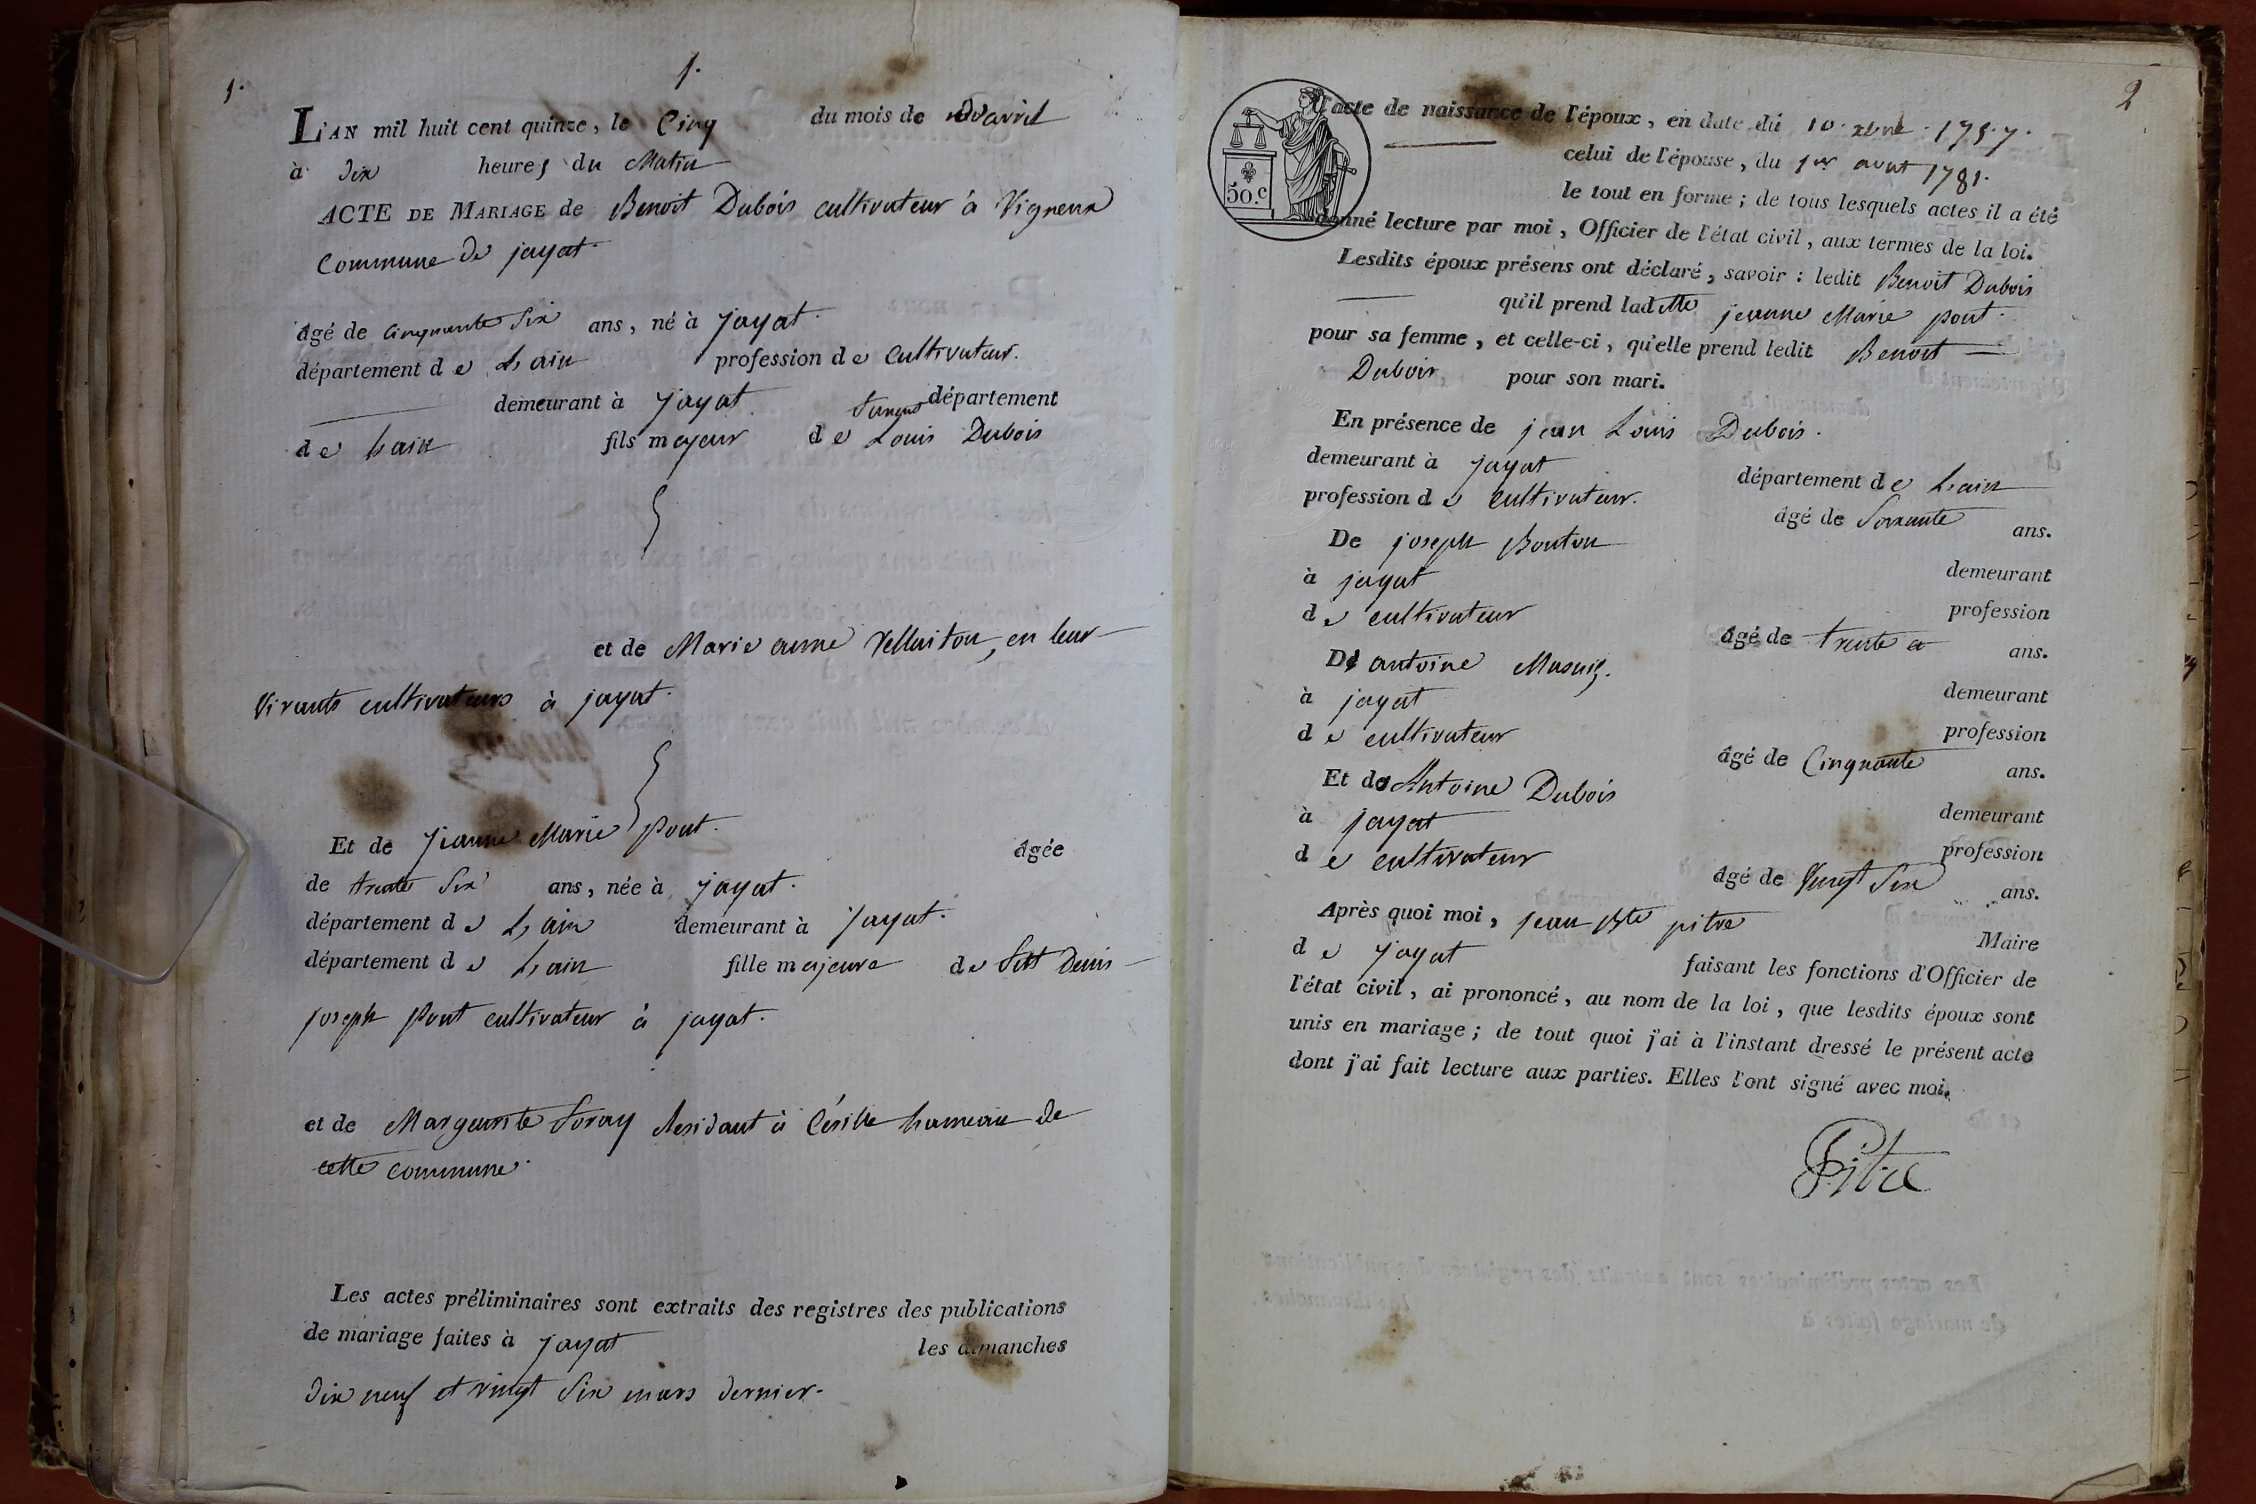 1.
1.
L'AN mil huit cent quinze, le Cinq du mois de avril
à dix heures du Matin
ACTE DE MARIAGE de Benoit Dubois cultivateur à Vigneux
Commune de jayat.
âgé de cinquante six ans, né à jayat.
département de Lain profession de Cultivateur.
demeurant à jayat département
de Lain fils majeur de Louis Dubois
et de Marie anne en leur
vivants cultivateurs à jayat.
Et de jeanne Marie Pont. âgée
de trente six ans, née à jayat.
département de Lain demeurant à jayat.
département de Lain fille majeure de Denis
joseph Pont cultivateur à jayat.
et de Margueritte Residant à hameau de
cette commune.
Les actes préliminaires sont extraits des registres des publications
de mariage faites à jayat les dimanches
dix neuf et vingt six mars dernier.
2
50.c
L'acte de naissance de l'époux, en date du 10 xbre 1757.
celui de l'épouse, du 1er aout 1781.
le tout en forme ; de tous lesquels actes il a été
donné lecture par moi, Officier de l'état civil, aux termes de la loi.
Lesdits époux présens ont déclaré, savoir : ledit Benoit Dubois
qu'il prend ladette jeanne Marie pont.
pour sa femme, et celle-ci, qu'elle prend ledit Benoit
Dubois pour son mari.
En présence de jean Louis Dubois.
demeurant à jayat département de Lain
profession de cultivateur. âgé de Soixante ans.
De joseph Bouton demeurant
à jayat profession
de cultivateur âgé de trente ans.
De antoine demeurant
à jayat profession
de cultivateur âgé de Cinquante ans.
Et de Antoine Dubois demeurant
à jayat profession
de cultivateur âgé de Vingt Six ans.
Après quoi moi, jean Bte pitre Maire
de jayat faisant les fonctions d'Officier de
l'état civil, ai prononcé, au nom de la loi, que lesdits époux sont
unis en mariage ; de tout quoi j'ai à l'instant dressé le présent acte
dont j'ai fait lecture aux parties. Elles l'ont signé avec moi.
Pitre